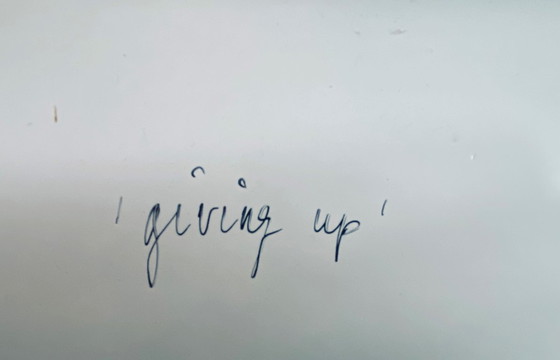 'giving up'